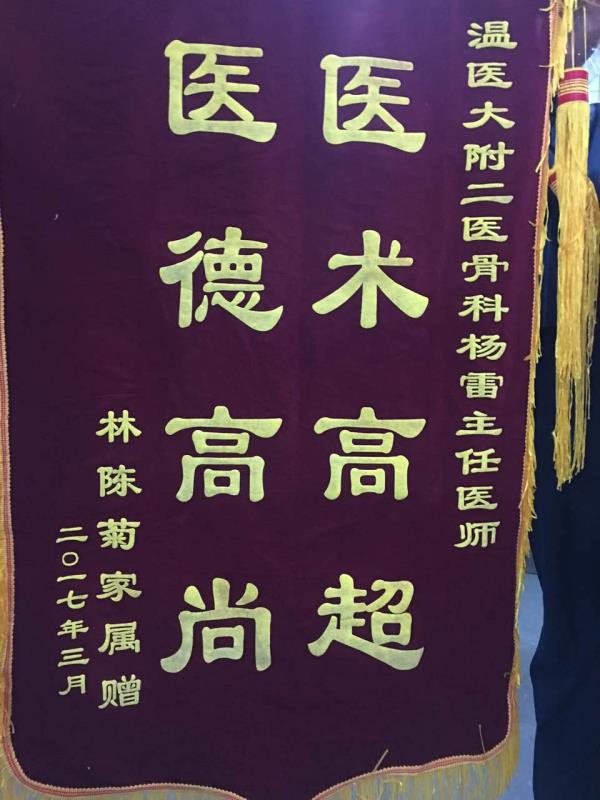 温医大附二医骨科杨雷主任医师
医术高超
医德高尚
林陈菊家属赠
二〇一七年三月